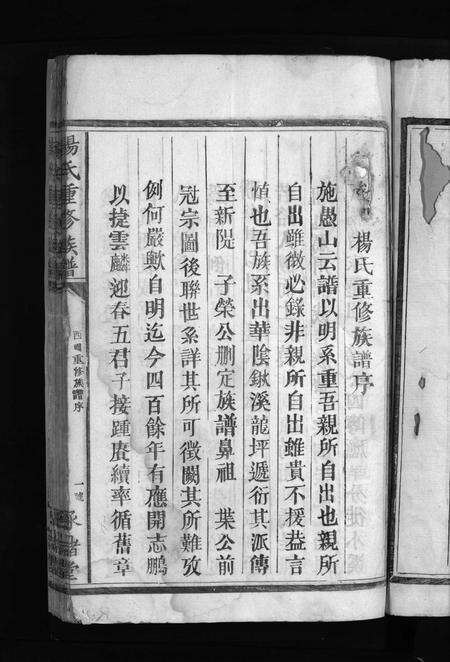 楊氏重修族譜序
施愚山云譜以明系重吾親所自出也親所
自出雖微必錄非親所自出雖貴不援益言
慎也吾族系出華陰鍬溪龍坪遞衍其派傳
至新隄 子榮公刪定族譜鼻祖 葉公前
冠宗圖後聯世系詳其所可徵闕其所難攷
例何嚴歟自明迄今四百餘年有應開志鵬
以捷雲麟迎春五君子接踵賡續率循舊章
楊氏重修族譜
重修族譜序
一
堂